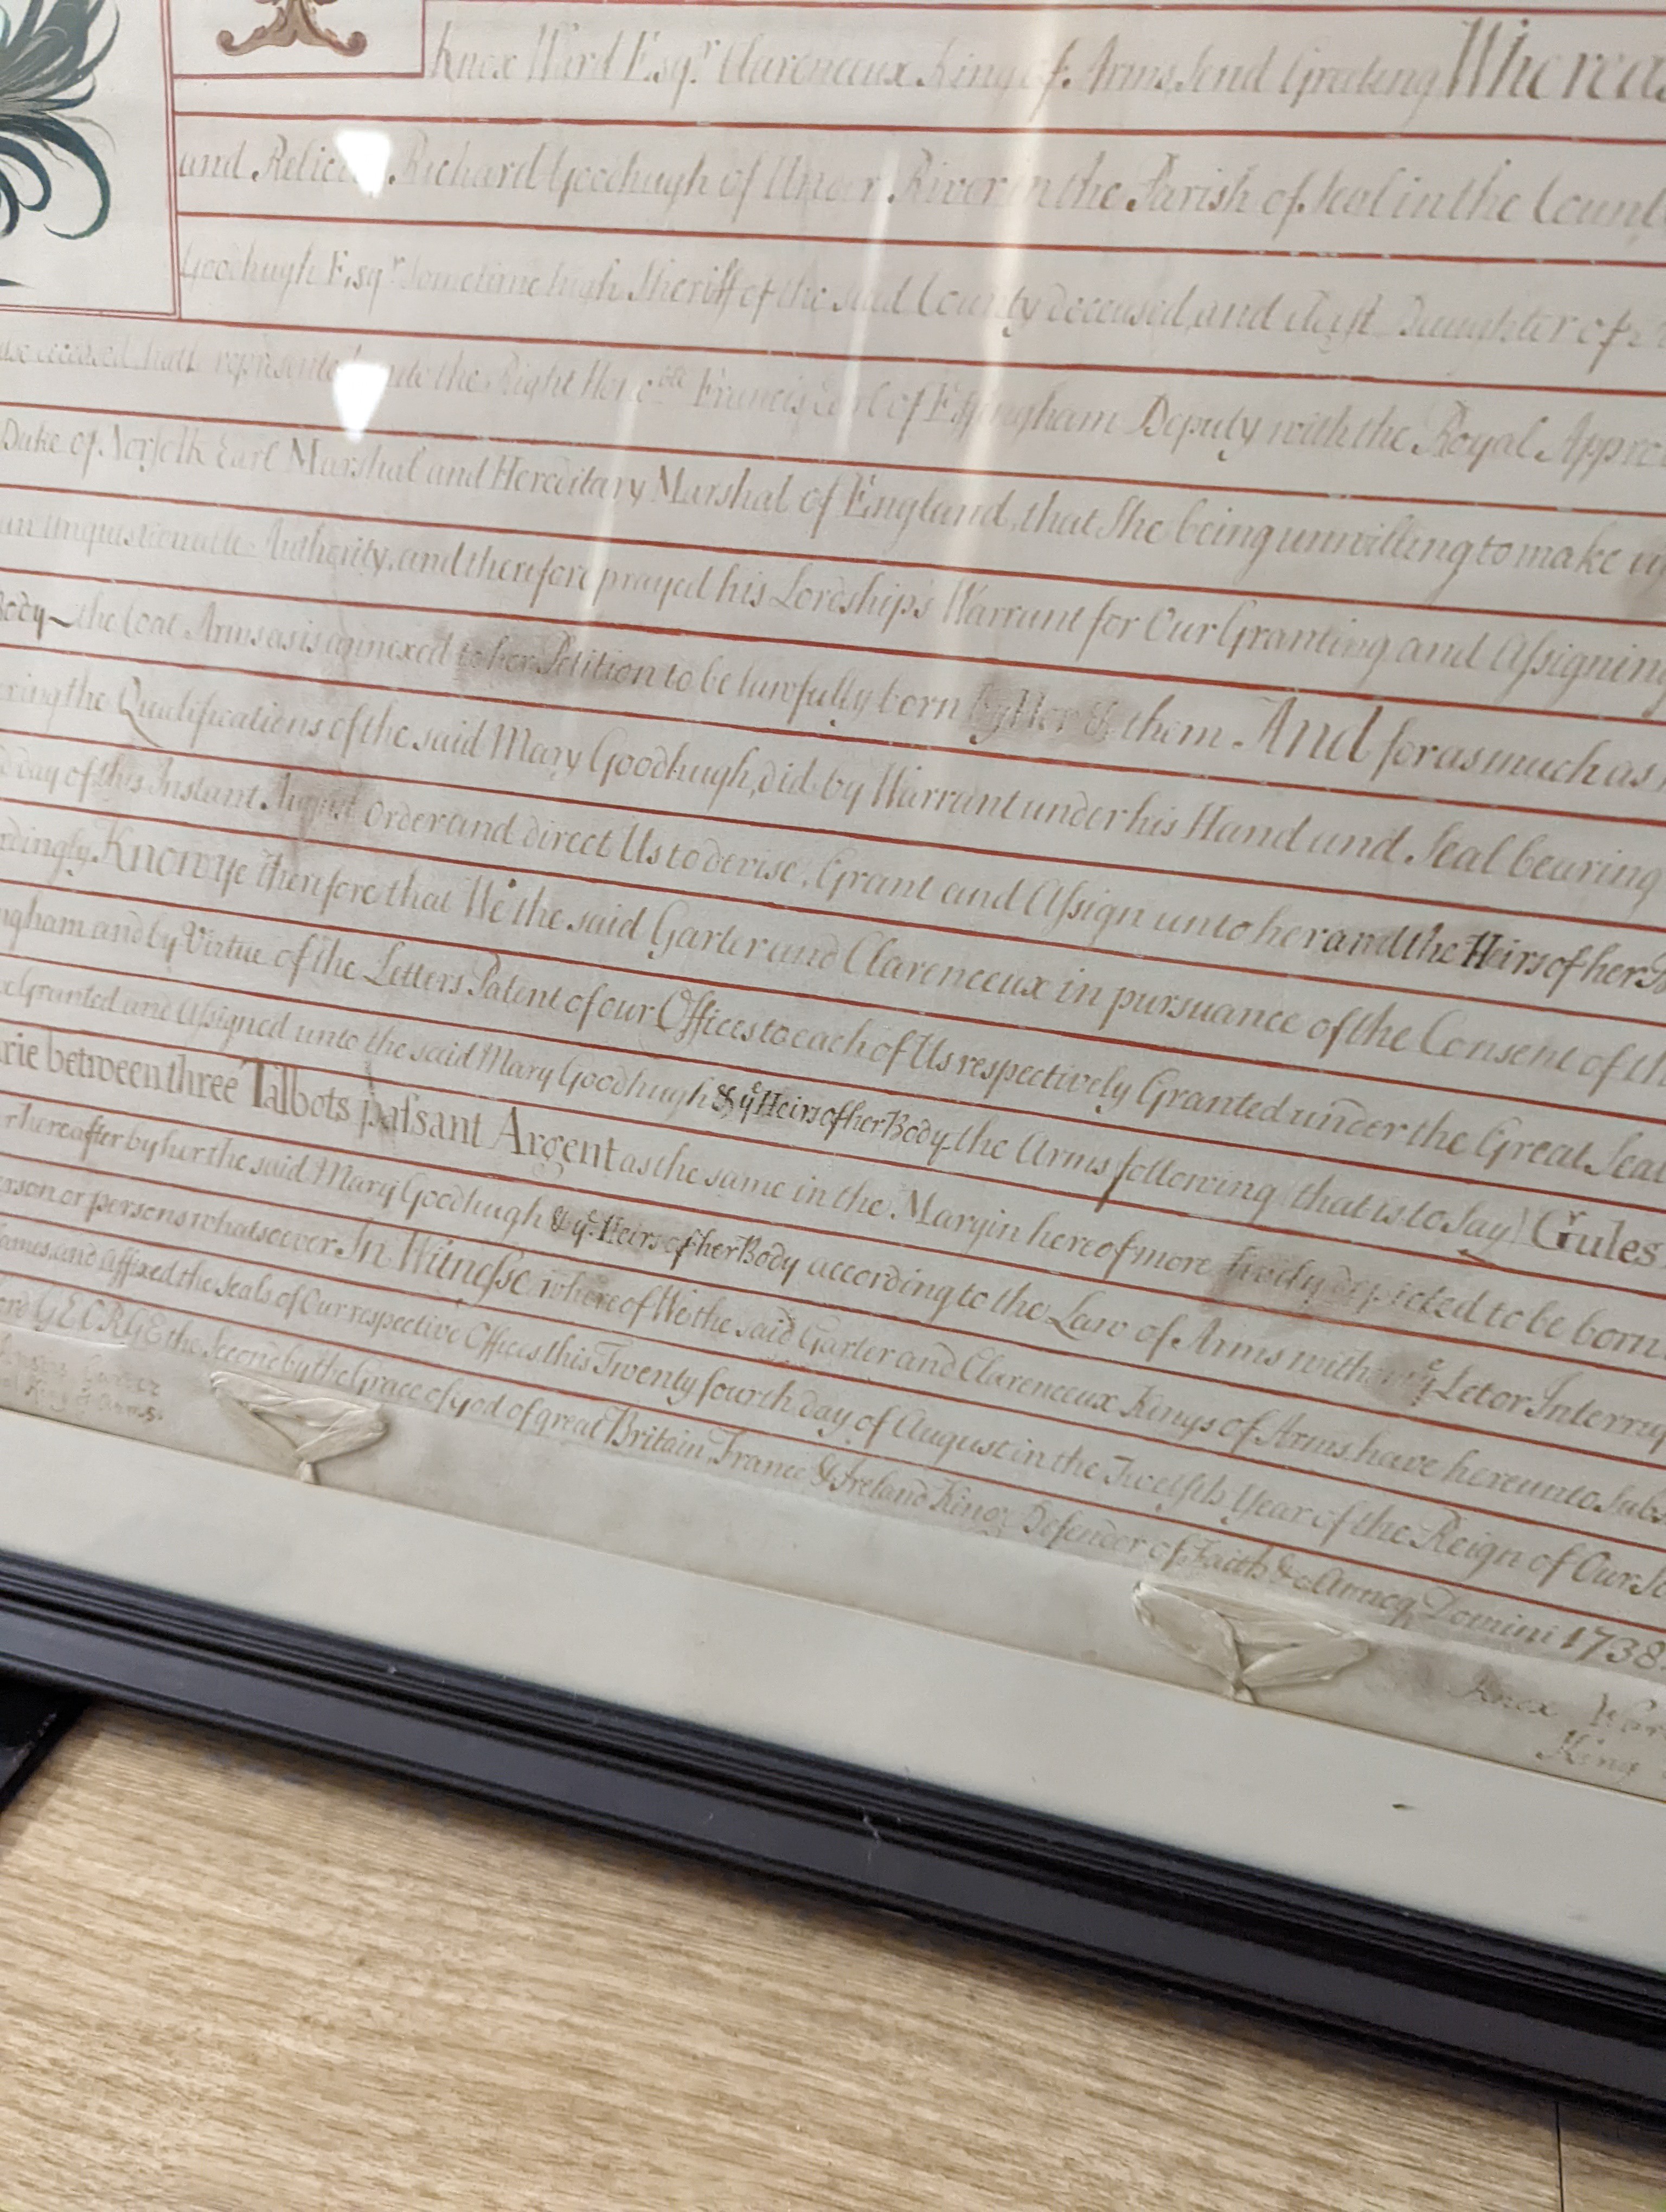 Knox Ward Esqr. Clarenceux King of Arms Send Greeting Whereas
and Relict Richard Goodhugh of Under River in the Parish of Seal in the Count
Goodhugh Esqr sometime high Sheriff of the said County deceased, and Daughter of
deceased, hath represented unto the Right Honoble Francis Earl of Effingham Deputy with the Royal Appro
Duke of Norfolk Earl Marshal and Hereditary Marshal of England, that She being unwilling to make u
an unquestionable Authority, and therefore prayed his Lordship's Warrant for Our Granting and Assigning
Body the Coat Arms as is annexed to her Petition to be lawfully born by Her & them. And forasmuch as
the Qualifications of the said Mary Goodhugh, did by Warrant under his Hand and Seal bearing
day of this Instant August Order and direct Us to devise, Grant and Assign unto her and the Heirs of her B
rdingly. Know ye therefore that We the said Garter and Clarenceux in pursuance of the Consent of th
ngham and by Virtue of the Letters Patent of our Offices to each of Us respectively Granted under the Great Seal
Granted and Assigned unto the said Mary Goodhugh & ye Heirs of her Body the Arms following (that is to Say) Gules
rie between three Talbots passant Argent as the same in the Margin hereof more lively depicted to be born
r hereafter by her the said Mary Goodhugh & ye Heirs of her Body according to the Law of Arms without ye Let or Interrup
erson or persons whatsoever. In Witnesse whereof We the said Garter and Clarenceux Kings of Arms have hereunto Subs
ames and affixed the Seals of Our respective Offices this Twenty fourth day of August in the Twelfth Year of the Reign of Our So
ord GEORGE the Second by the Grace of God of great Britain, France & Ireland King Defender of Faith &c Annoq Domini 1738.
Garter
King of Arms.
Knox War
King